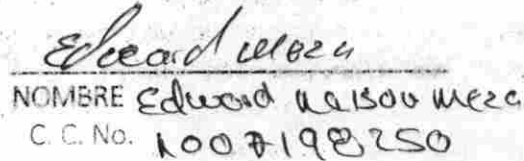 Edward Meza
NOMBRE Edward Nelson Meza
C. C. No. 1007198250